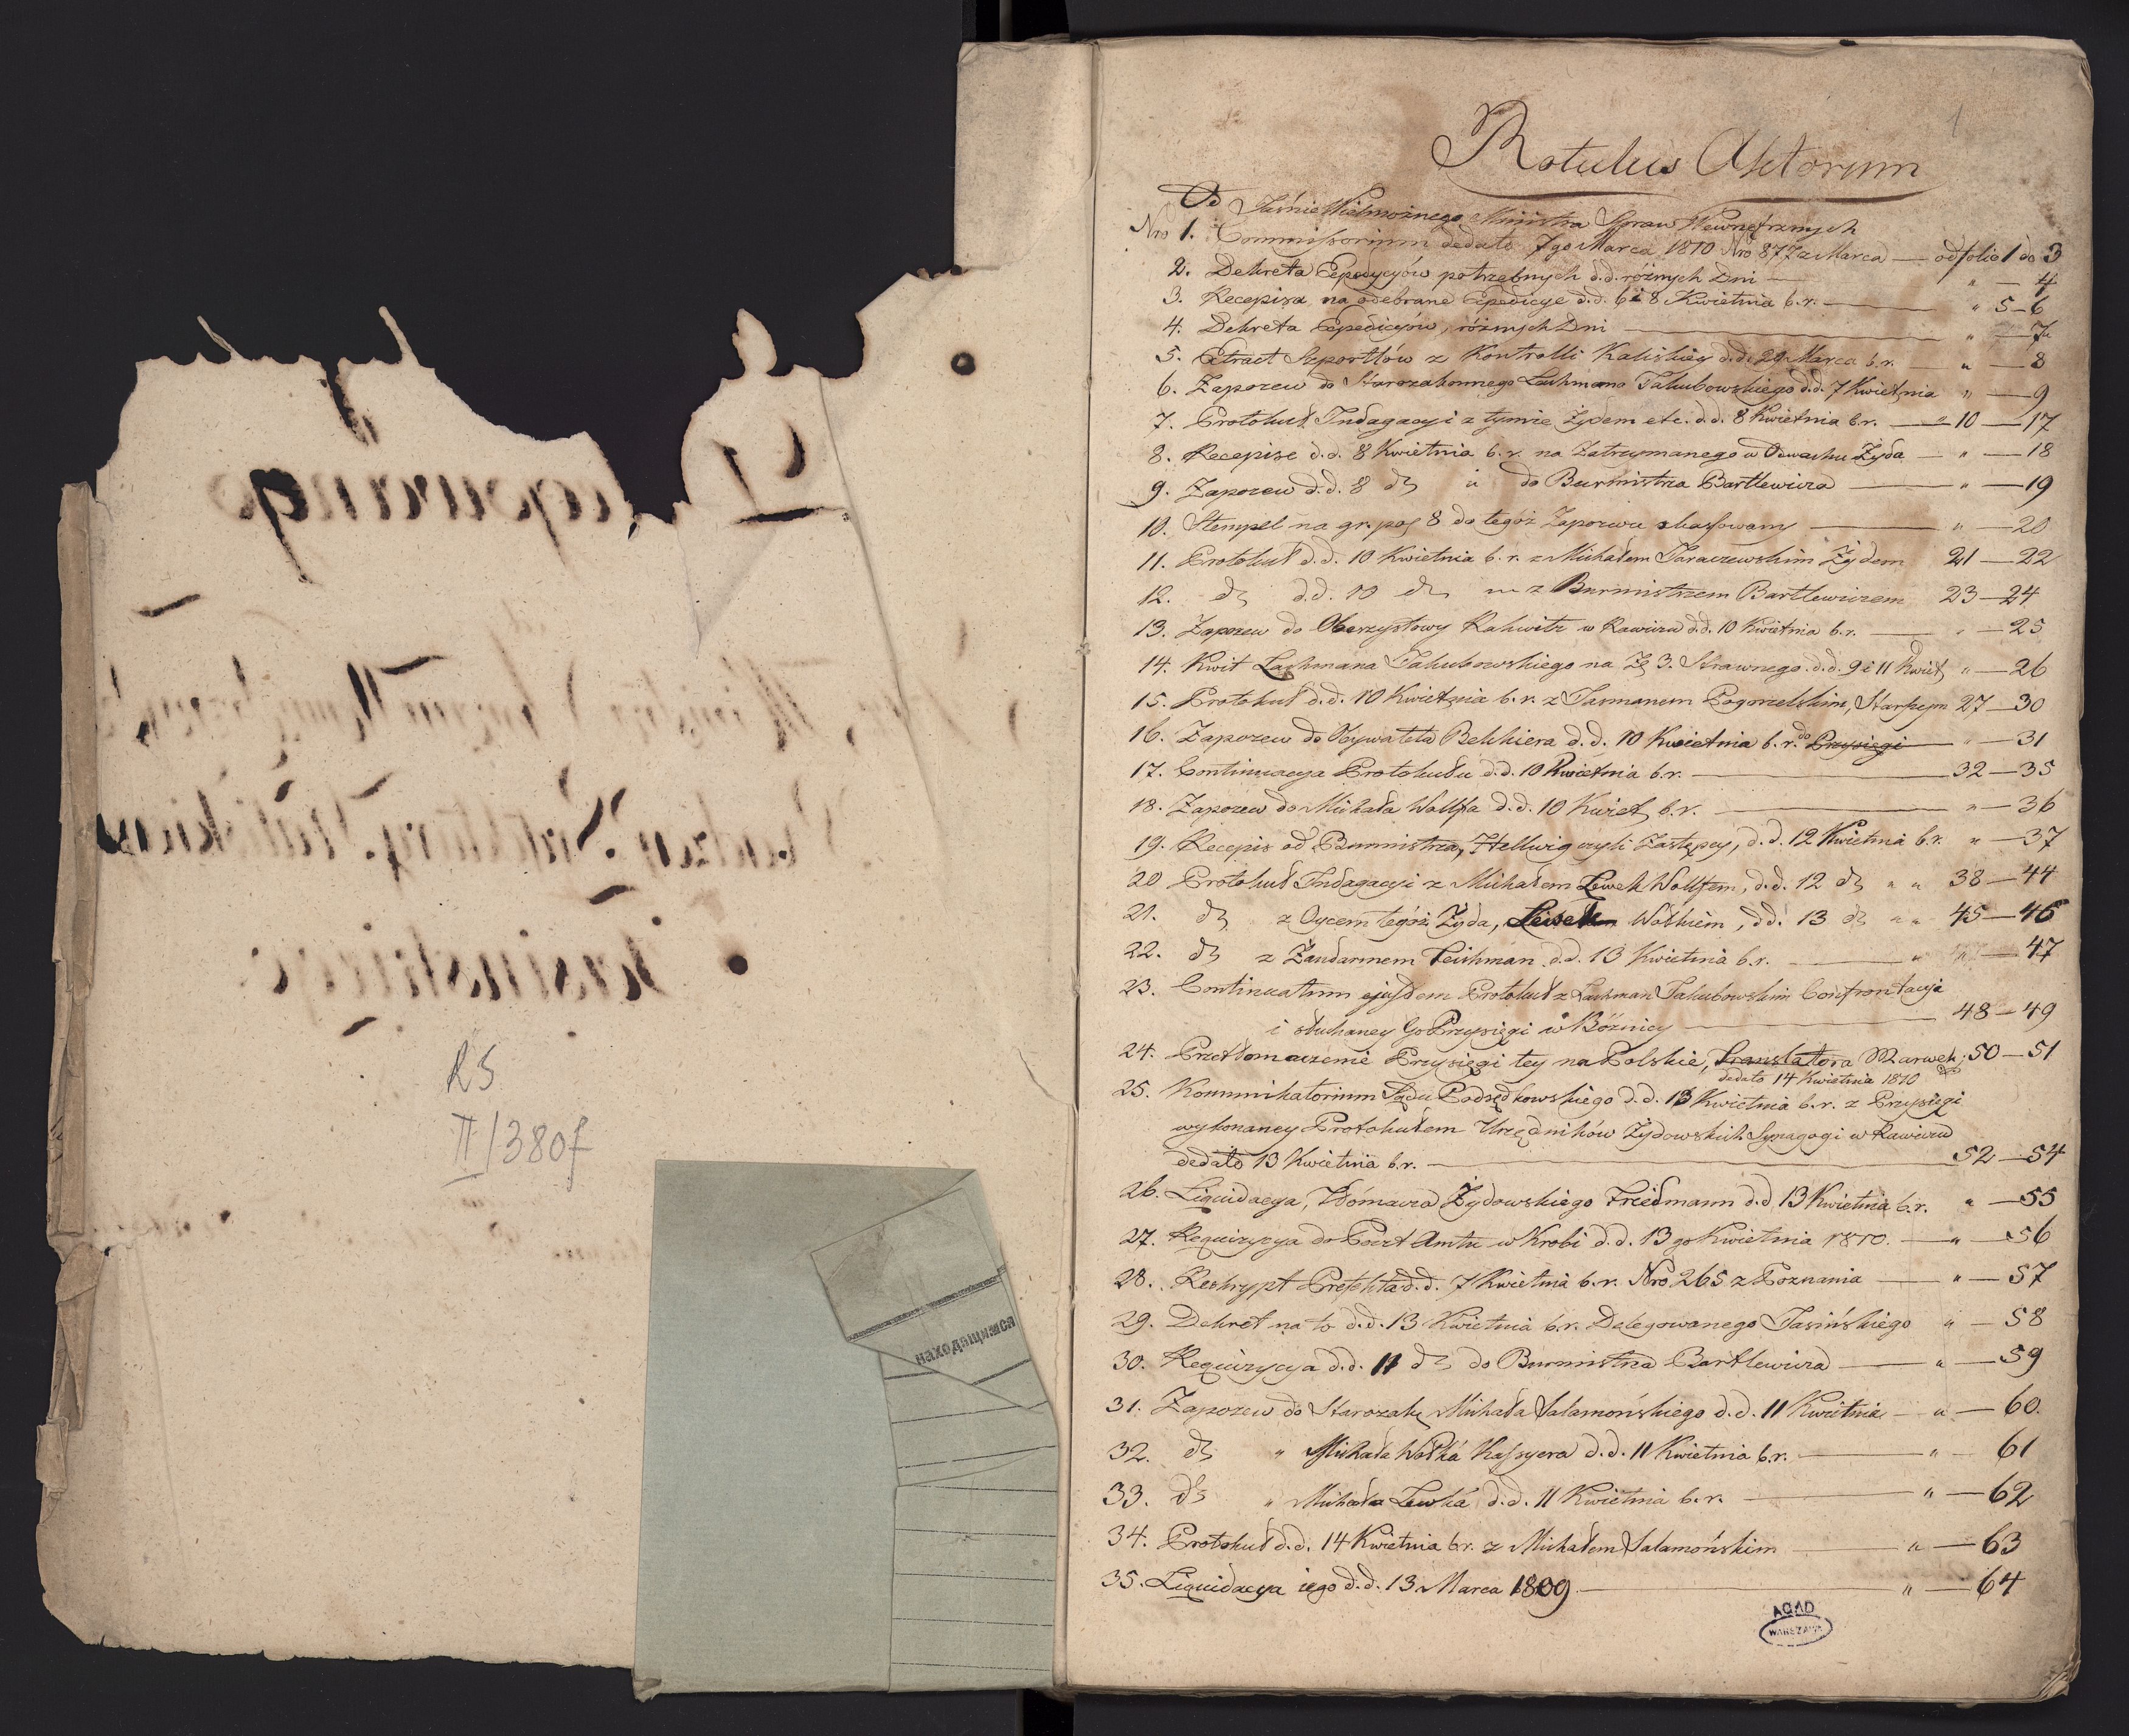 RS
II/380f
находящимся
1
Rotulus Aktorum
Od Jaśnie Wielmożnego Ministra Spraw Wewnętrznych
Nro 1. Commissorium dedato 7go Marca 1810 Nro 877 a Marca — od folio 1 do 3
2. Dekreta Expedycyów potrzebnych d.d. różnych Dni — " — 4
3. Recepissa na odebrane Expedicye d.d. 6 i 8 Kwietnia b.r. — " 5–6
4. Dekreta Expedicyów, różnych Dni — " — 7
5. Extract Szportlów z Kontrolli Kaliskiey d.d. 29 Marca b.r. — " — 8
6. Zapozew do Starozakonnego Lachmana Jakubowskiego d.d. 7 Kwietnia " — 9
7. Protokuł Indagacyi z tymże Żydem etc. d.d. 8 Kwietnia b.r. — " 10 — 17
8. Recepise d.d. 8 Kwietnia b.r. na Zatrzymanego w Odwachu Żyda — " — 18
9. Zapozew d.d. 8 do Burmistrza Bartlewicza — " — 19
10. Stempel na gr. pol 8 do tegóż Zapozwu skassowany — " — 20
11. Protokuł d.d. 10 Kwietnia b.r. z Michałem Taraczewskim Żydem 21 — 22
12. d.d. 10 z Burmistrzem Bartlewiczem 23 — 24
13. Zapozew do Oberzystowy Rakwitz w Rawiczu d.d. 10 Kwietnia b.r. — " — 25
14. Kwit Lachmana Jakubowskiego na 3. Strawnego d.d. 9 i 11 Kwiet " — 26
15. Protokuł d.d. 10 Kwietnia b.r. z Jasmanem Pogorzelskim, Starszym 27 — 30
16. Zapozew do Obywatela Belkhiera d.d. 10 Kwietnia b.r. do Przysięgi — " — 31
17. Continuacya Protokułu d.d. 10 Kwietnia b.r. — 32 — 35
18. Zapozew do Michała Wolffa d.d. 10 Kwiet b.r. — " — 36
19. Recepis od Burmistrza, Hellwig czyli Zastępcy, d.d. 12 Kwietnia b.r. " — 37
20 Protokuł Indagacyi z Michałem Lewek Wolffem, d.d. 12 " " 38 — 44
21. z Oycem tegóż Żyda, Lewek Wolkiem, d.d. 13 " " 45 — 46
22. z Żandarmem Teichman d.d. 13 Kwietnia b.r. — " " — 47
23. Continuatum ejusdem Protokuł z Lachman Jakubowskim Confrontacya
i słuchaney Go Przysięgi w Bóźnicy — 48 — 49
24. Przetłomaczenie Przysięgi tey na Polskie, Translatora Marwek, 50 — 51
dedato 14 Kwietnia 1810
25. Kommunikatorium Sądu Podsędkowskiego d.d. 13 Kwietnia b.r. z Przysięgi
wykonaney Protokułem Urzędników Żydowskich Synagogi w Rawiczu
dedato 13 Kwietnia b.r. — 52 — 54
26. Liquidacya, Tłómacza Żydowskiego Friedmann d.d. 13 Kwietnia b.r. " — 55
27. Requizycya do Poczt Amtu w Krobi d.d. 13go Kwietnia 1810. — " — 56
28. Reskrypt Prefekta d.d. 7 Kwietnia b.r. Nro 265 z Poznania — " — 57
29. Dekret na to d.d. 13 Kwietnia b.r. Delegowanego Jasińskiego " — 58
30. Requizycya d.d. 11 do Burmistrza Bartlewicza — " — 59
31. Zapozew do Starozak Michała Salamońskiego d.d. 11 Kwietnia — " — 60.
32. " Michała Wolka Kassyera d.d. 11 Kwietnia b.r. — " — 61
33. " Michała Lewka d.d. 11 Kwietnia b.r. — " — 62
34. Protokuł d.d. 14 Kwietnia b.r. z Michałem Salamońskim — " — 63
35. Liquidacya iego d.d. 13 Marca 1809 — " — 64
AGAD
WARSZAWA